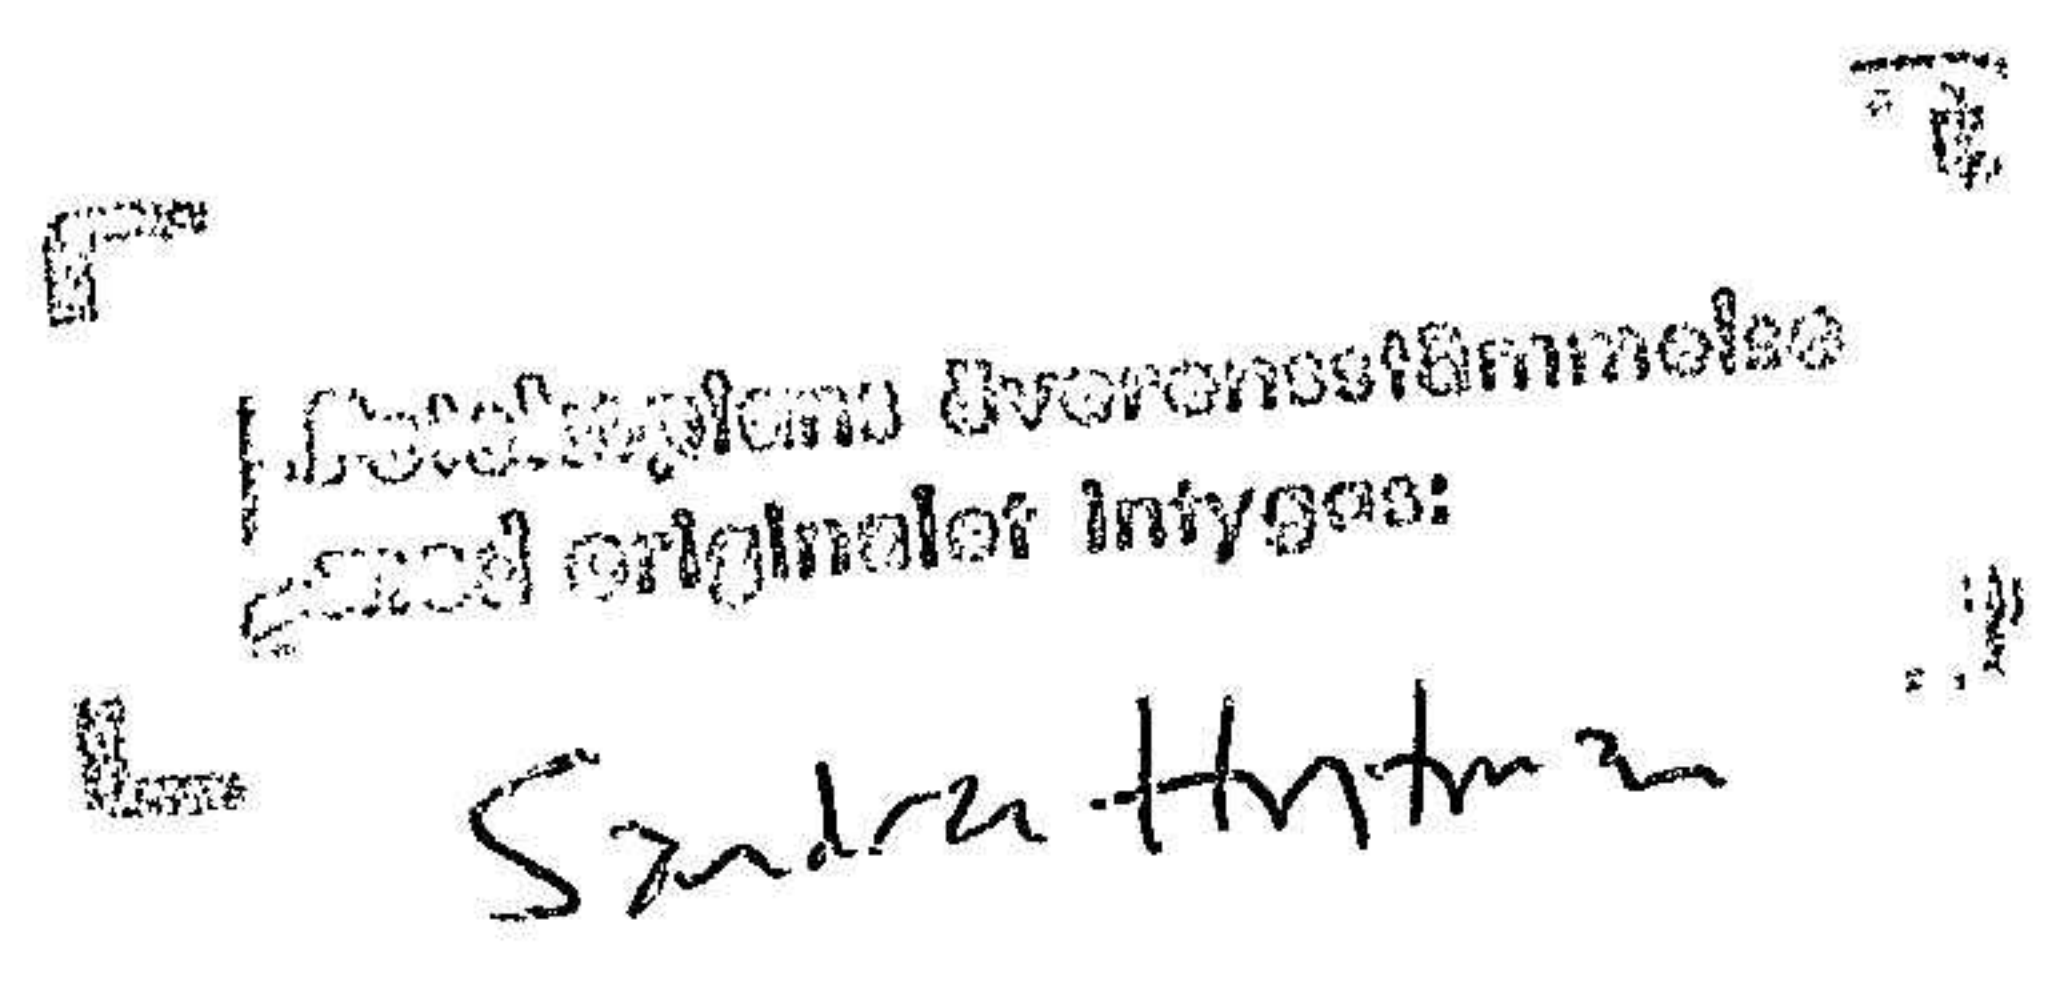 Fotokopians överensstämmelse
med originalet intygas:
Sandra